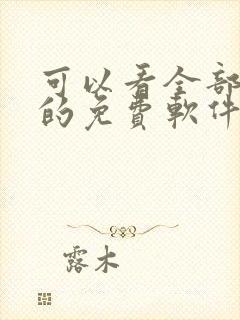 可以看全部
的免費軟件
露木